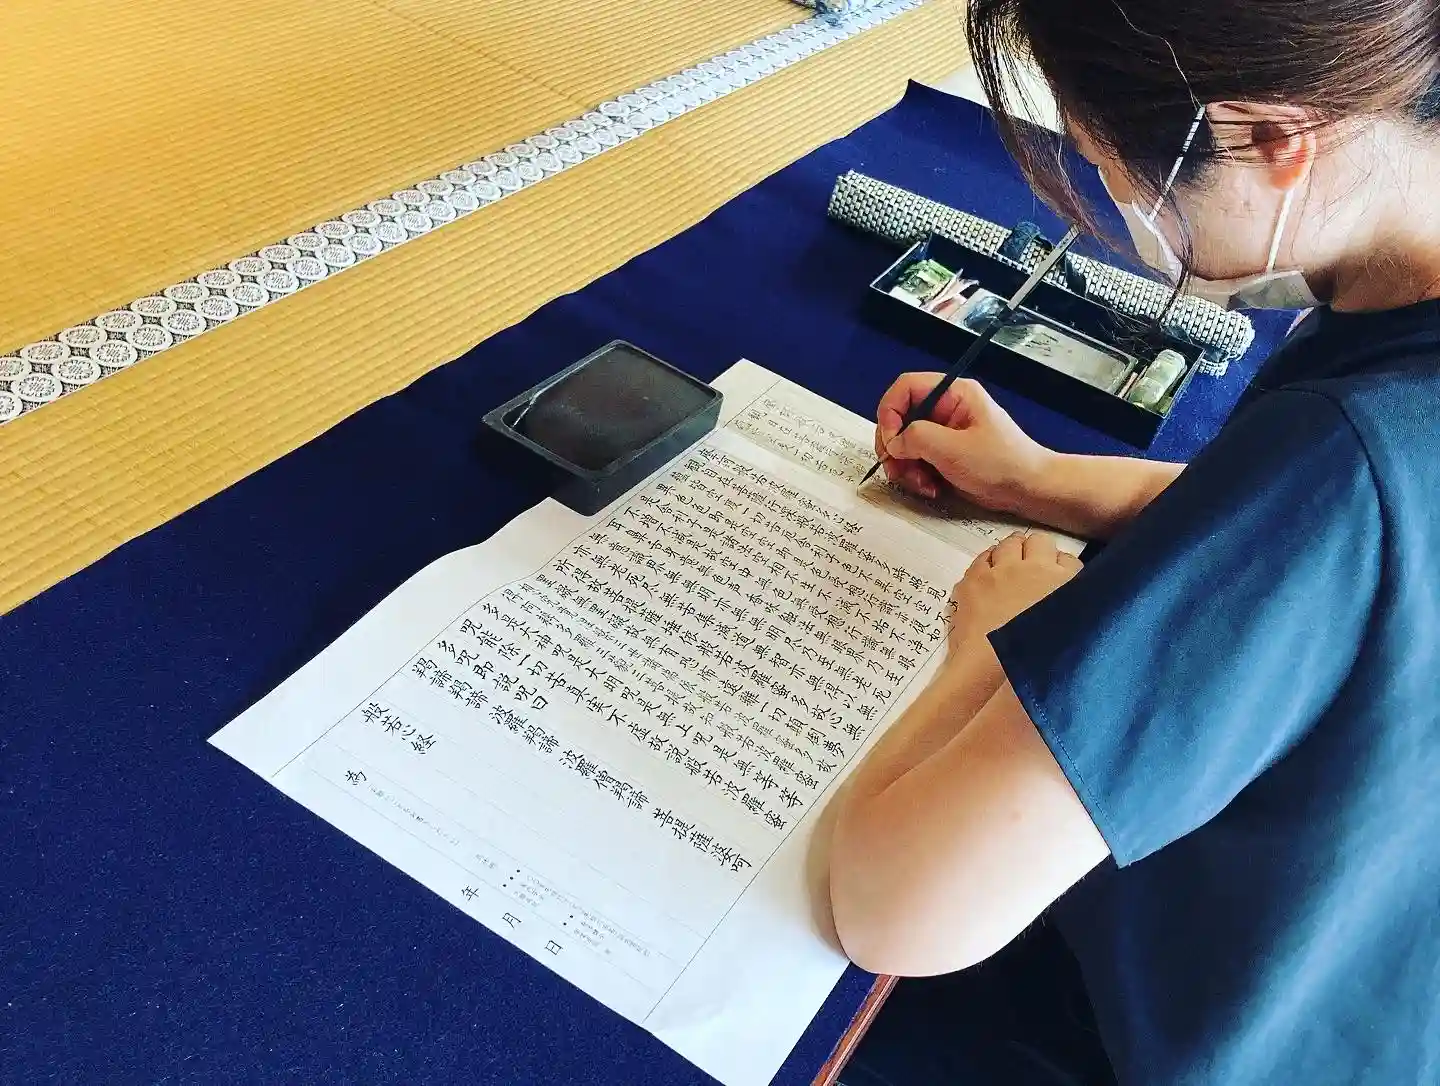 摩訶般若波羅蜜多心経
観自在菩薩行深般若波羅蜜多時照見五
蘊皆空度一切苦厄舎利子色不異空空不
異色色即是空空即是色受想行識亦復如
是舎利子是諸法空相不生不滅不垢不浄
不増不減是故空中無色無受想行識無眼
耳鼻舌身意無色声香味触法無眼界乃至
無意識界無無明亦無無明尽乃至無老死
亦無老死尽無苦集滅道無智亦無得以無
所得故菩提薩埵依般若波羅蜜多故心無
罣礙無罣礙故無有恐怖遠離一切顛倒夢
想究竟涅槃三世諸仏依般若波羅蜜多故
得阿耨多羅三藐三菩提故知般若波羅蜜
多是大神呪是大明呪是無上呪是無等等
呪能除一切苦真実不虚故説般若波羅蜜
多呪即説呪曰
羯諦羯諦 波羅羯諦 波羅僧羯諦 菩提薩婆訶
般若心経
為
年 月 日